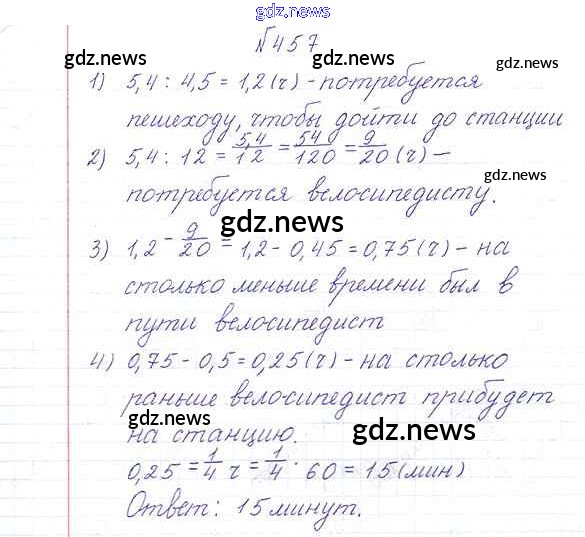 gdz.news
№457
gdz.news gdz.news
1) 5,4 : 4,5 = 1,2 (ч) - потребуется
gdz.news
пешеходу, чтобы дойти до станции
2) 5,4 : 12 = 5,4/12 = 54/120 = 9/20 (ч) –
gdz.news
потребуется велосипедисту.
gdz.news
3) 1,2 - 9/20 = 1,2 - 0,45 = 0,75 (ч) - на
столько меньше времени был в
пути велосипедист
4) 0,75 - 0,5 = 0,25 (ч) - на столько
раньше велосипедист прибудет
gdz.news gdz.news
на станцию.
0,25 = 1/4 ч = 1/4 · 60 = 15 (мин)
gdz.news gdz.news
Ответ: 15 минут.